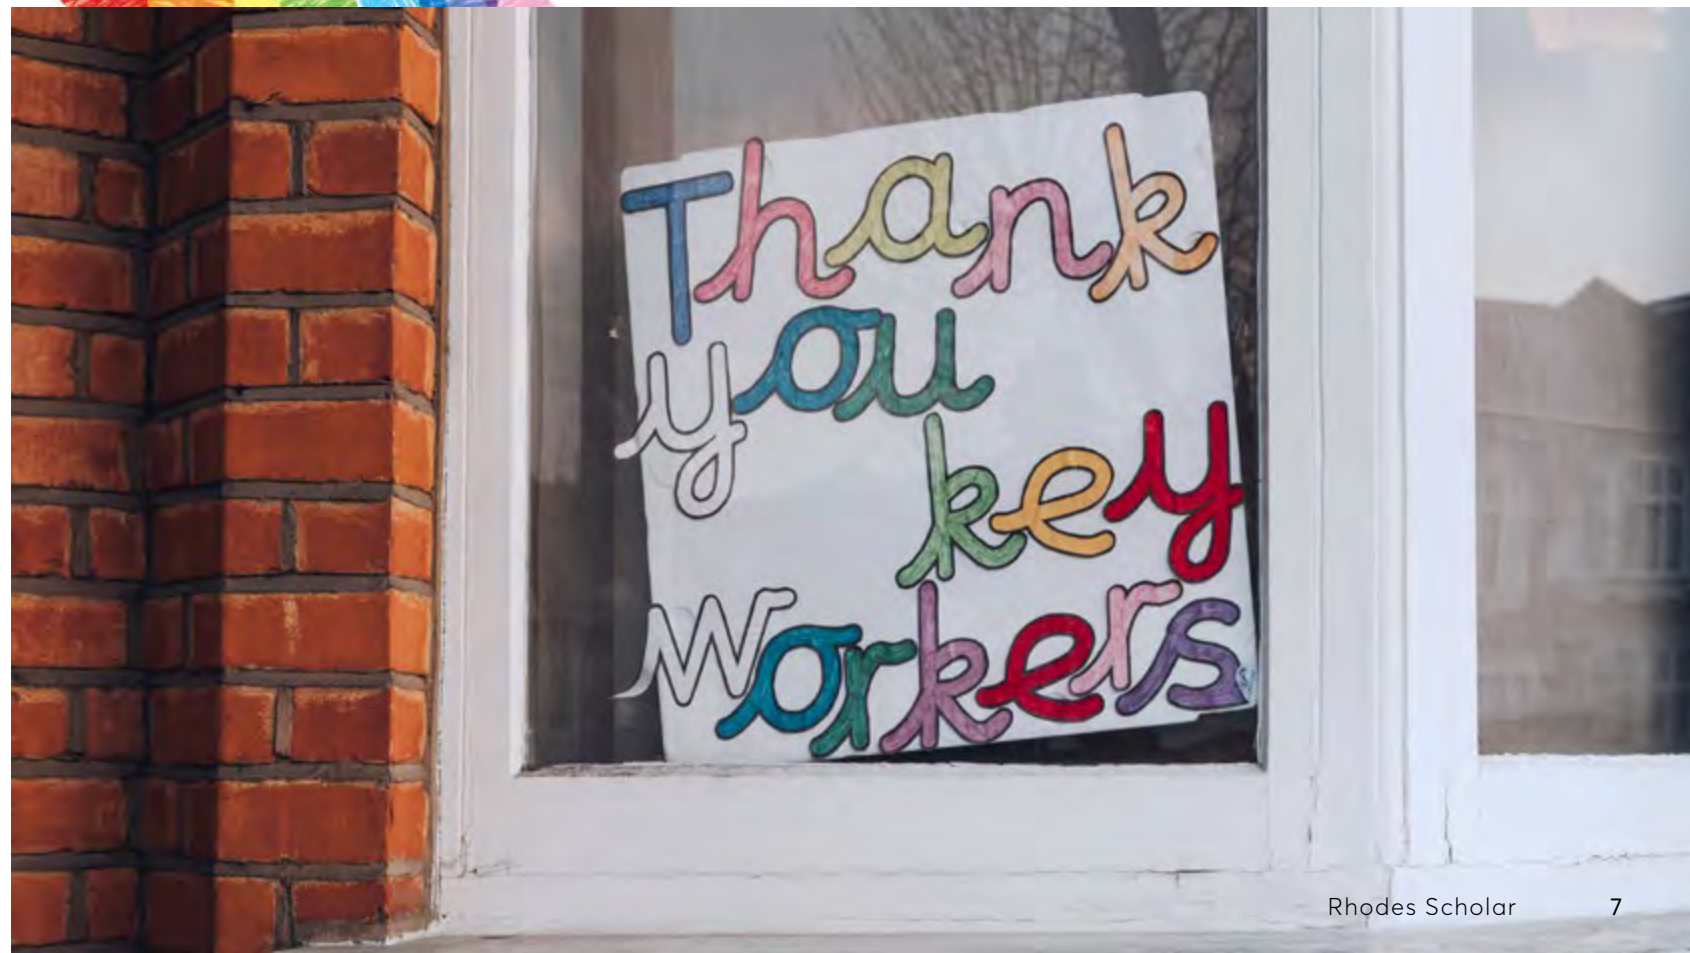 Thank
you
key
workers
Rhodes Scholar 7